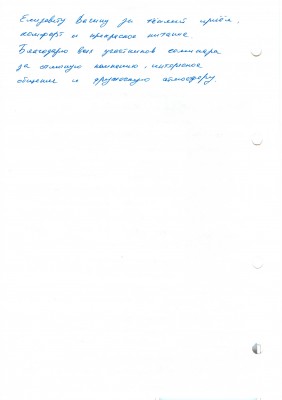 Елизавету Васину за тёплый приём,
комфорт и прекрасное питание
Благодарю всех участников семинара
за отличную компанию, интересное
общение и дружескую атмосферу.